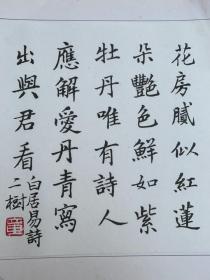 花房膩似紅蓮
朵艷色鮮如紫
牡丹唯有詩人
應解愛丹青寫
出與君看
白居易詩
二樹
童